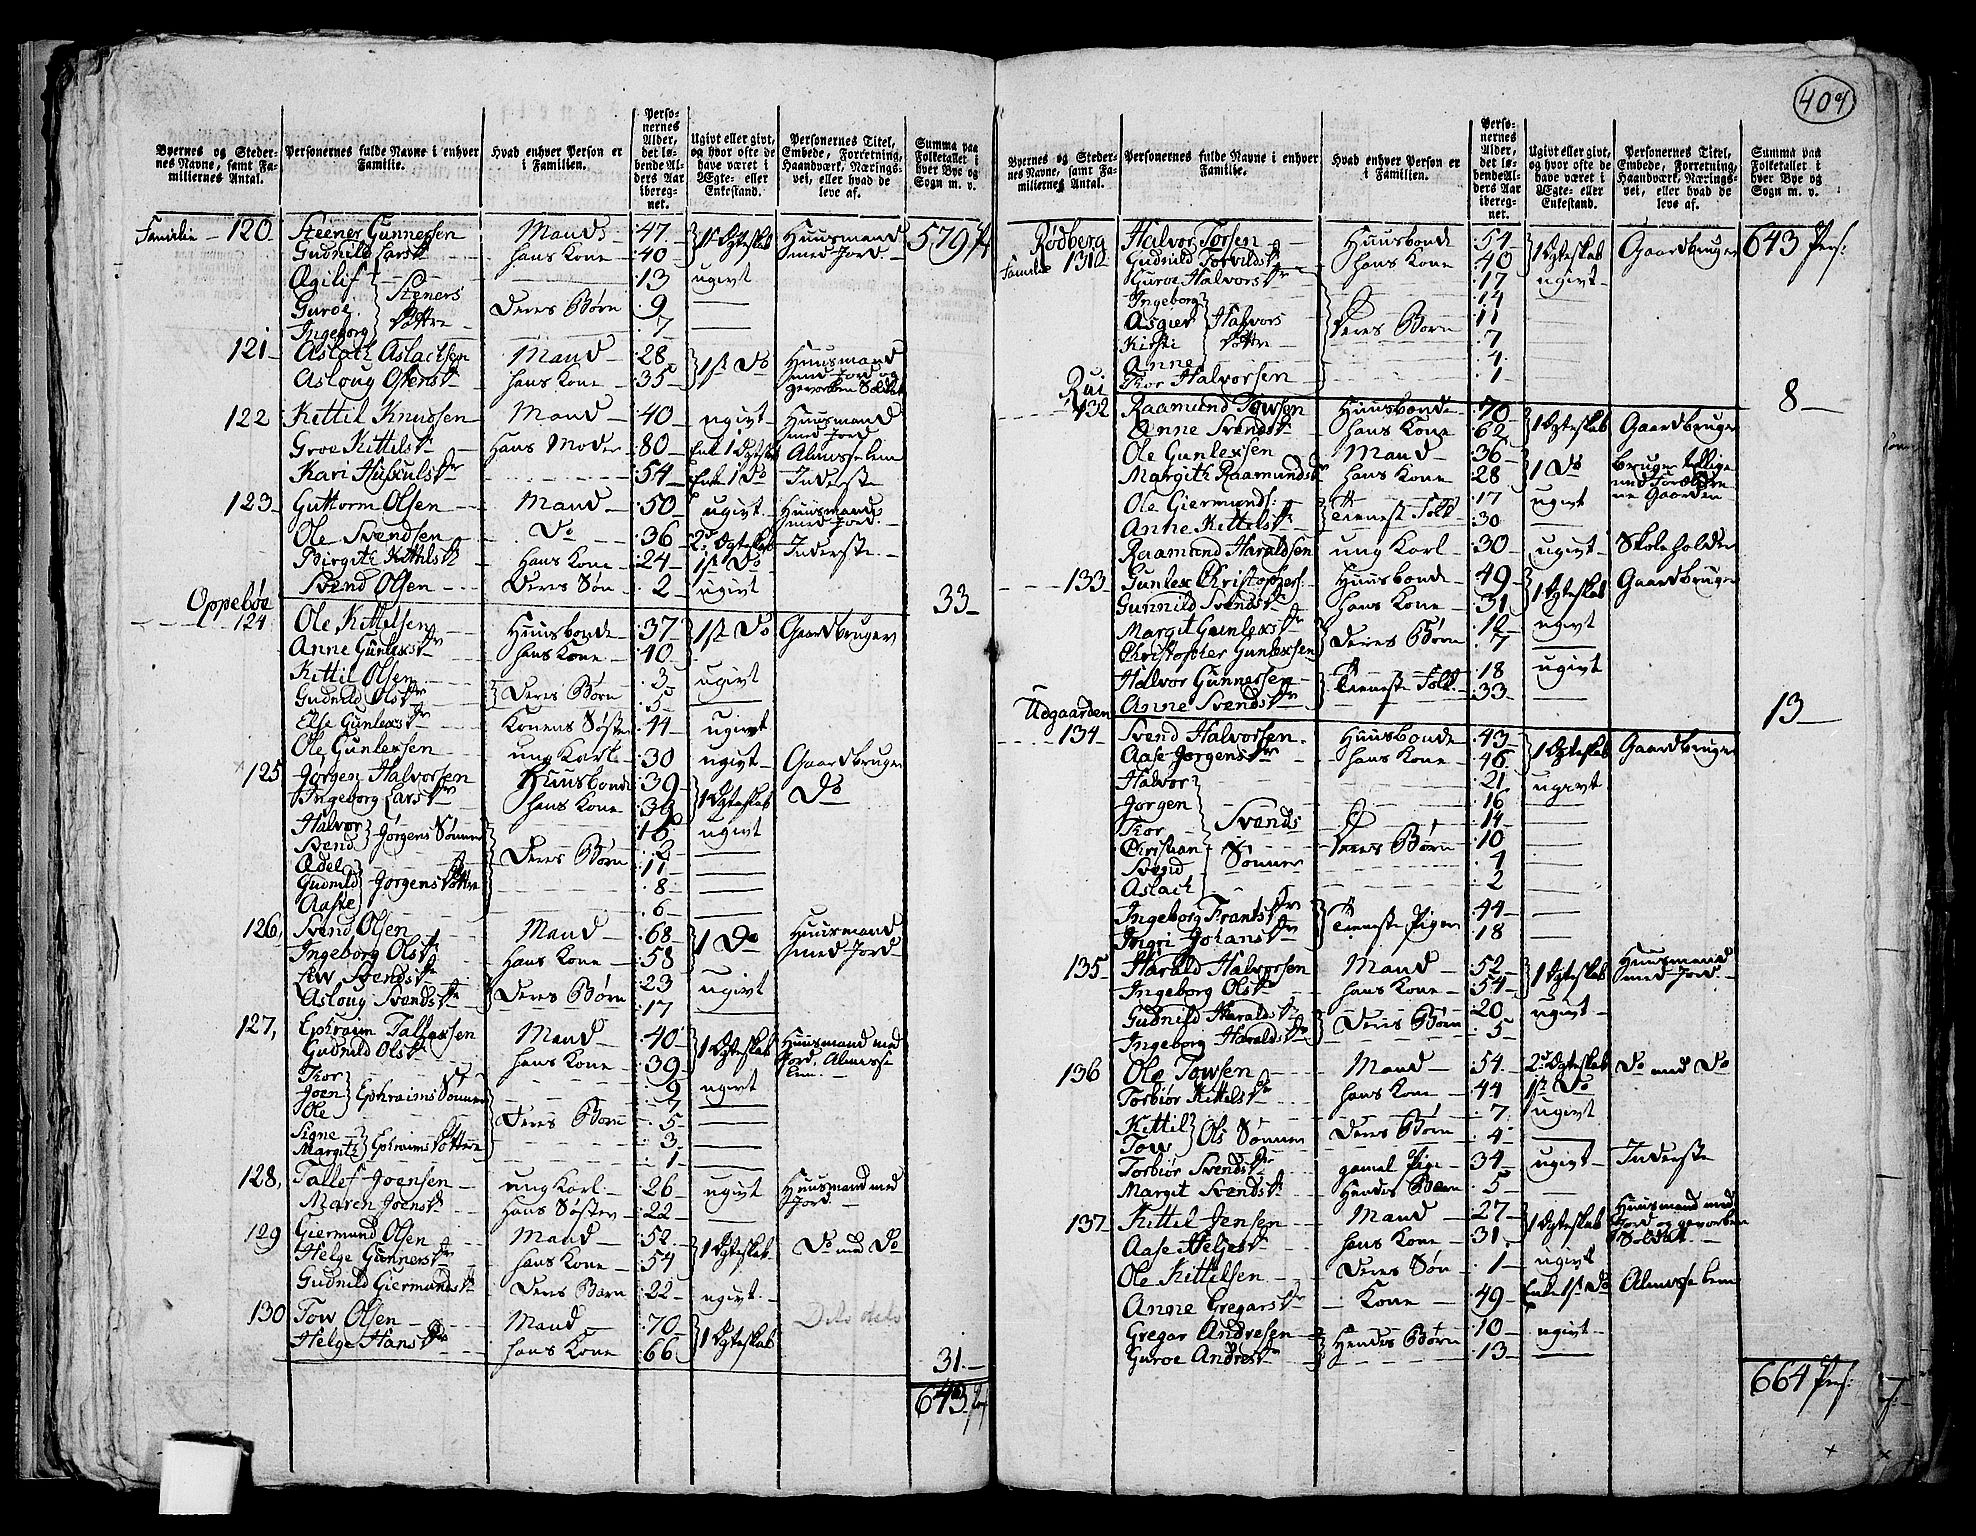 404
Byernes og Stedernes Navne, samt Familiernes Antal. | Personernes fulde Navne i enhver Familie. | Hvad enhver Person er i Familien. | Personernes Alder, det løbende Alders Aar iberegnet. | Ugivt eller givt, og hvor ofte de have været i Ægte- eller Enkestand. | Personernes Titel, Embede, Forretning, Haandværk, Næringsvei, eller hvad de leve af. | Summa paa Folketallet i hver Bye og Sogn m. v.
Familie 120 Steener Gunnersen Mand 47 1ste Ægteskab Huusmand med Jord 579
Gudnild Larsdtr hans Kone 40
13 ugivt
Guroe Steners Døttre Deres Børn 9
Ingeborg 7
121 Aslach Aslachsen Mand 28 1st Do Huusmand med Jord og gevorben Soldat
Asloug hans Kone 35
122 Kittil Knudsen Mand 40 ugivt Huusmand med Jord
Groe Kittilsdtr Hans Moder 80 Enke 1 Ægtesk Almisselem
Kari 54 Enke 1 Do Inderste
123 Guttorm Olsen Mand 50 ugivt Huusmand med Jord
Ole Svendsen Do 36 2d Ægteskab Inderste
Birgith Kittilsdtr Hans Kone 24 1st Do
Svend Olsen Deres Søn 2 ugivt 33
Oppebøe
124 Ole Kittilsen Huusbonde 37 1st Do Gaardbruger
Anne Gunlexsdtr hans Kone 40
Kittil Olsen 3 ugivt
Gudnild Olsdtr Deres Børn 5
Else Gunlexsdtr Konens Søster 44 ugivt
Ole Gunlexsen ung Karl 30 ugivt Gaardbruger
125 Jørgen Halvorsen Huusbonde 39 1 Ægteskab Do
Ingeborg Larsdtr hans Kone 39
Halvor Jørgens Sønner 16 ugivt
Svend 2
Deres Børn 11
Gudnild Jørgens Døttre 8
Aase 6
126 Svend Olsen Mand 68 1 Do Huusmand med Jord
Ingeborg Olsdtr hans Kone 58
Liv Svendsdtr 23 ugivt
Asloug Svendsdtr Deres Børn 17
127 Ephraim Tallexsen Mand 40 1 Ægteskab Huusmand med Jord, Almisselem
Gudnild Olsdtr hans Kone 39
Tor 9 ugivt
Joen Ephraims Sønner 7
Ole Deres Børn 5
Signe 3
Margith Ephraims Døttre 1
128 Tallef Joensen ung Karl 26 ugivt Huusmand med Jord
Maren Joensdtr Hans Søster 22
129 Giermund Olsen Mand 52 1 Ægteskab Do med Do
Helge Gunnersdtr hans Kone 54
Gudnild Giermundsdtr Deres Barn 22 ugivt
130 Tow Olsen Mand 70 1 Ægteskab Dito dito
Helge Hansdtr hans Kone 66 31
643
Byernes og Stedernes Navne, samt Familiernes Antal. | Personernes fulde Navne i enhver Familie. | Hvad enhver Person er i Familien. | Personernes Alder, det løbende Alders Aar iberegnet. | Ugivt eller givt, og hvor ofte de have været i Ægte- eller Enkestand. | Personernes Titel, Embede, Forretning, Haandværk, Næringsvei, eller hvad de leve af. | Summa paa Folketallet i hver Bye og Sogn m. v.
Rødberg Halvor Torsen Huusbonde 54 1 Ægteskab Gaardbruger 643 Pers:
Familie 131 Gudnild hans Kone 40
Guroe Halvorsdtr 17 ugivt
Ingeborg 14
Asgier Halvors Døttre Deres Børn 11
Kirsti 7
Anne 4
Tor Halvorsen 1 8
Rui
132 Raamund Towsen Huusbonde 70 1 Ægteskab Gaardbruger
Anne Svendsdtr hans Kone 62
Ole Gunlexsen Mand 36 1 Do
Margith Raamundsdtr hans Kone 28
Ole Giermunds: 17 ugivt
Anne Kittelsdtr Tieneste Folk 30
Raamund Haraldsen ung Karl 30 ugivt Skoleholder
133 Gunlex Christophers: Huusbonde 49 1 Ægteskab Gaardbruger
Gunnild Svendsdtr hans Kone 31
Margit Gunlexsdtr Deres Børn 12 ugivt
Christopher Gunlexsen 7
Halvor Gunnersen Tieneste Folk 18 ugivt
Anne Svendsdtr 33 13
Udgaarden
134 Svend Halvorsen Huusbonde 43 1 Ægteskab Gaardbruger
Aase Jørgensdtr hans Kone 46
Halvor 21 ugivt
Jørgen 16
Tor Svends Sønner 14
Christian Deres Børn 10
Svend 4
Aslach 2
Ingeborg Frantsdtr 44
Ingri Johansdtr Tieneste Piger 18
135 Harald Halvorsen Mand 52 1 Ægteskab Huusmand med Jord
Ingeborg Olsdtr hans Kone 54
Gudnild Haraldsdtr 20 ugivt
Ingeborg Haraldsdtr Deres Børn 5
136 Ole Towsen Mand 54 2d Ægteskab Do med Do
Torbiør Kittelsdtr hans Kone 44 1st Do
Kittil Ols Sønner Deres Børn 7 ugivt
Tow 4
Torbiør Svendsdtr gamel Pige 34 ugivt Inderste
Margit Svendsdtr Hendes Barn 5
137 Kittil Jensen Mand 27 1 Ægteskab Huusmand med Jord og gevorben Soldat
Aase Helgesdtr hans Kone 31
Ole Kittilsen Deres Søn 1 ugivt
Anne Gregarsdtr Kone 49 Enke 1st Do Almisselem
Gregar Andresen Hendes Børn 10 ugivt
Guroe Andresdtr 13
664 Pers: